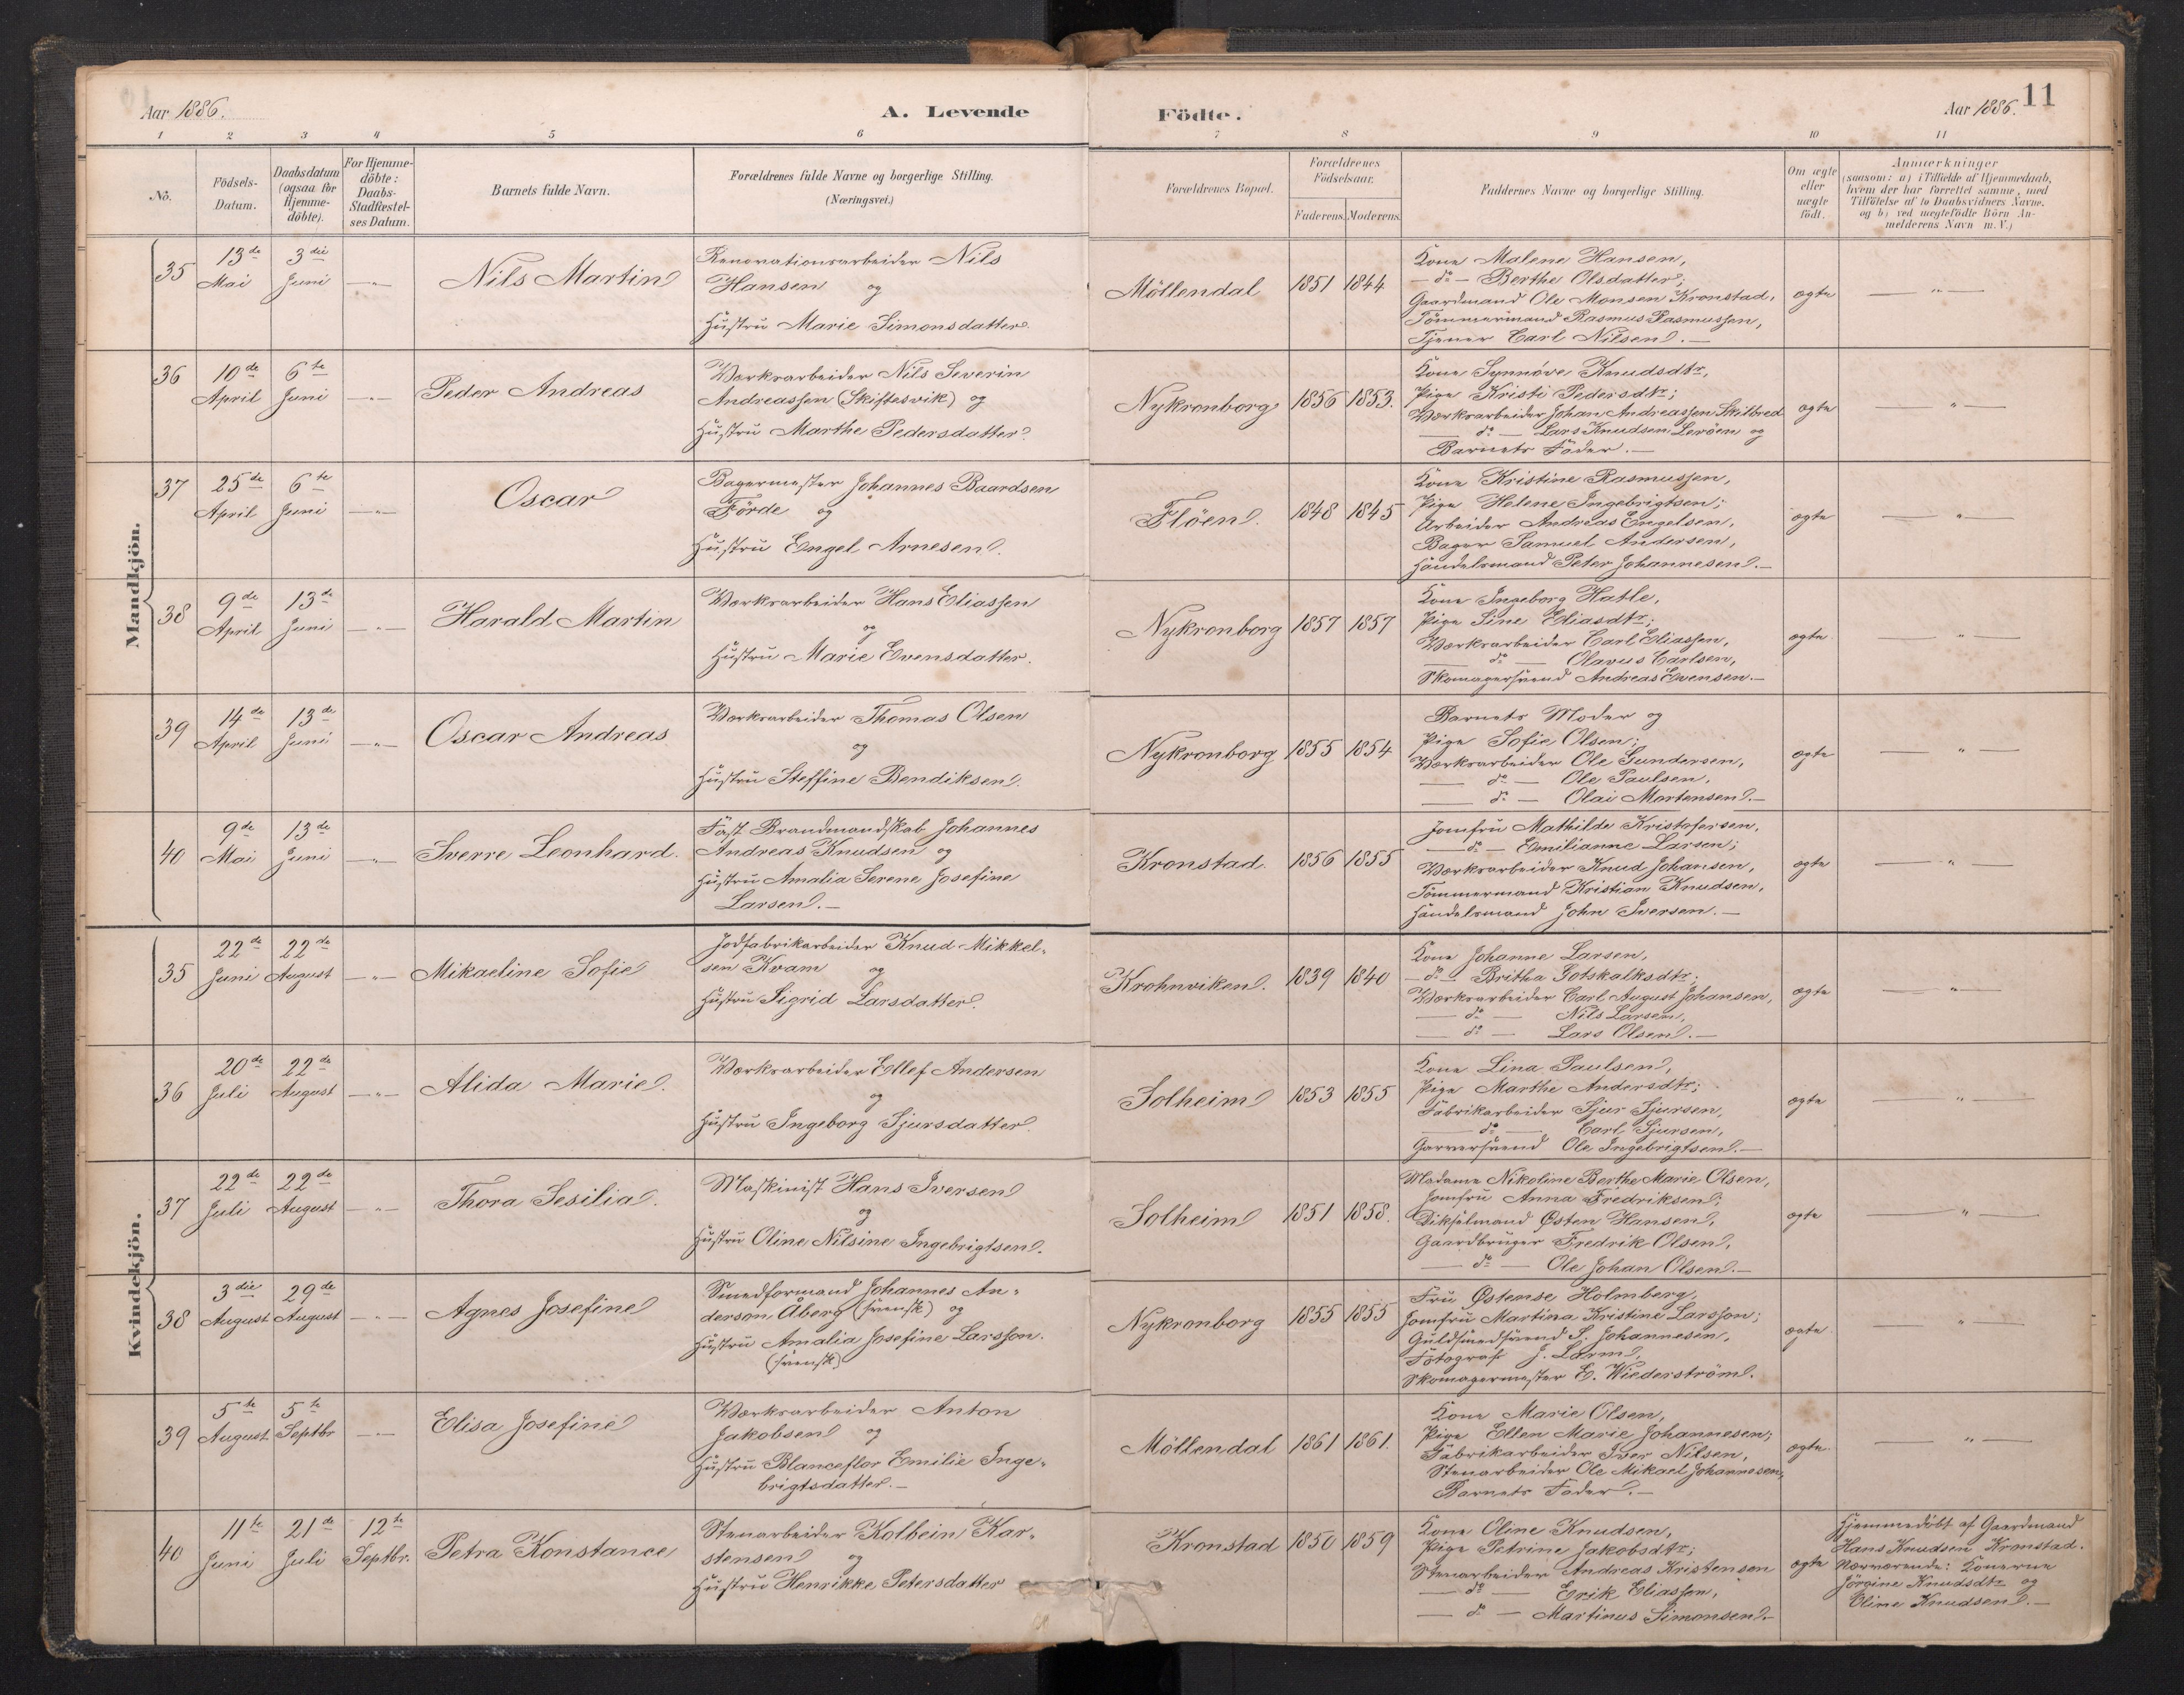 Aar 1886.
A. Levende
Födte.
Aar 1886.
11
1 2 3 4 5 6 7 8 9 10 11
No.
Födsels-
Datum.
Daabsdatum
(ogsaa for
Hjemme-
döbte).
For Hjemme-
döbte:
Daabs-
Stadfæstel-
ses Datum.
Barnets fulde Navn.
Forældrenes fulde Navne og borgerlige Stilling.
(Næringsvei.)
Forældrenes Bopæl.
Forældrenes
Födselsaar.
Faderens. Moderens.
Faddernes Navne og borgerlige Stilling.
Om ægte
eller
uægte
födt.
Anmærkninger
(saasom: a) i Tilfælde af Hjemmedaab,
hvem der har forrettet samme, med
Tilföielse af to Daabsvidners Navne.
og b) ved uægtefödte Börn An-
melderens Navn m. V.)
Mandkjön.
35
13de
Mai
3die
Juni
— " —
Nils Martin
Renovationsarbeider Nils
Hansen og
Hustru Marie Simonsdatter.
Möllendal
1851 1844
Kone Malene Hansen,
— do — Berthe Olsdatter;
Gaardmand Ole Monsen Kronstad,
Tömmermand Rasmus Rasmussen,
Tjener Carl Nilsen. —
ægte
— " —
36
10de
April
6te
Juni
— " —
Peder Andreas
Værksarbeider Nils Severin
Andreassen (Skiftesvik) og
Hustru Marthe Pedersdatter.
Nykronborg
1856 1853.
Kone Synnöve Knudsdtr,
Pige Kristi Pedersdtr;
Værksarbeider Johan Andreassen Skilbred
— do — Lars Knudsen Leröen og
Barnets Fader. —
ægte
" —
37
25de
April
6te
Juni
— " —
Oscar
Bagermester Johannes Baardsen
Förde og
Hustru Engel Arnesen.
Flöen.
1848 1845
Kone Kristine Rasmussen,
Pige Helene Ingebrigtsen;
Arbeider Andreas Engelsen,
Bager Samuel Andersen,
Handelsmand Peter Johannesen. —
ægte
— " —
38
9de
April
13de
Juni
— " —
Harald Martin
Værksarbeider Hans Eliassen
og
Hustru Marie Evensdatter.
Nykronborg
1857 1857
Kone Ingeborg Hatle,
Pige Sine Eliasdtr;
Værksarbeider Carl Eliassen,
— do — Olavus Carlsen,
Skomagersvend Andreas Evensen. —
ægte
— " —
39
14de
April
13de
Juni
— " —
Oscar Andreas
Værksarbeider Thomas Olsen
og
Hustru Steffine Bendiksen.
Nykronborg
1855 1854
Barnets Moder og
Pige Sofie Olsen;
Værksarbeider Ole Gundersen,
— do — Ole Paulsen,
— do — Olai Mortensen. —
ægte
— " —
40
9de
Mai
13de
Juni
— " —
Sverre Leonhard.
Fast Brandmandskab Johannes
Andreas Knudsen og
Hustru Amalia Serene Josefine
Larsen. —
Kronstad
1856 1855
Jomfru Mathilde Kristofersen,
— do — Emilianne Larsen;
Værksarbeider Knud Johansen,
Tömmermand Kristian Knudsen,
Handelsmand John Iversen. —
ægte
— " —
Kvindekjön.
35
22de
Juni
22de
August
— " —
Mikaeline Sofie
Jodfabrikarbeider Knud Mikkel-
sen Kvam og
Hustru Sigrid Larsdatter.
Krohnviken.
1839 1840
Kone Johanne Larsen,
— do — Britha Gotskalksdtr;
Værksarbeider Carl August Johansen,
— do — Nils Larsen,
— do — Lars Olsen. —
ægte
— " —
36
20de
Juli
22de
August
— " —
Alida Marie.
Værksarbeider Ellef Andersen
og
Hustru Ingeborg Sjursdatter.
Solheim
1853 1855
Kone Lina Paulsen,
Pige Marthe Andersdtr;
Fabrikarbeider Sjur Sjursen,
— do — Carl Sjursen,
Garversvend Ole Ingebrigtsen. —
ægte
— " —
37
22de
Juli
22de
August
— " —
Thora Sesilia.
Maskinist Hans Iversen
og
Hustru Oline Nilsine Ingebrigtsen.
Solheim
1851 1858.
Madame Nikoline Berthe Marie Olsen,
Jomfru Anna Fredriksen;
Østen Hansen,
Gaardbruger Fredrik Olsen,
— do — Ole Johan Olsen. —
ægte
— " —
38
3die
August
29de
August
— " —
Agnes Josefine
Smedformand Johannes An-
derson Åberg (svensk) og
Hustru Amalia Josefine Larsson.
(svensk)
Nykronborg
1855 1855
Fru Østense Holmberg,
Jomfru Martina Kristine Larsson;
Guldsmedsvend S. Johannesen,
Fotograf J. Lorm,
Skomagermester E. Wiederström.
ægte
— " —
39
5te
August
5te
Septbr
— " —
Elisa Josefine
Værksarbeider Anton
Jakobsen og
Hustru Blanceflor Emilie Inge-
brigtsdatter. —
Möllendal
1861 1861.
Kone Marie Olsen,
Pige Ellen Marie Johannesen;
Fabrikarbeider Iver Nilsen,
Stenarbeider Ole Mikael Johannesen,
Barnets Fader. —
ægte
— " —
40
11te
Juni
21de
Juli
12te
Septbr.
Petra Konstance
Stenarbeider Kolbein Kar-
stensen og
Hustru Henrikke Petersdatter
Kronstad
1850 1859
Kone Oline Knudsen,
Pige Petrine Jakobsdtr;
Stenarbeider Andreas Kristensen
— do — Erik Eliassen,
— do — Martinus Simonsen. —
ægte
Hjemmedöbt af Gaardmand
Hans Knudsen Kronstad.
Nærværende: Konerne
Jörgine Knudsdtr og
Oline Knudsen. —